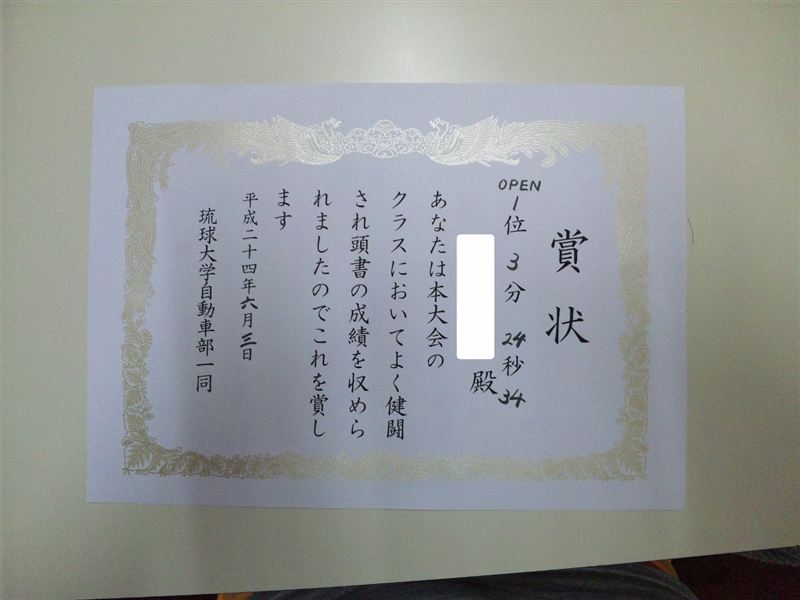 賞状
OPEN
1位 3分 24秒34
殿
あなたは本大会の
クラスにおいてよく健闘
され頭書の成績を収めら
れましたのでこれを賞し
ます
平成二十四年六月三日
琉球大学自動車部一同